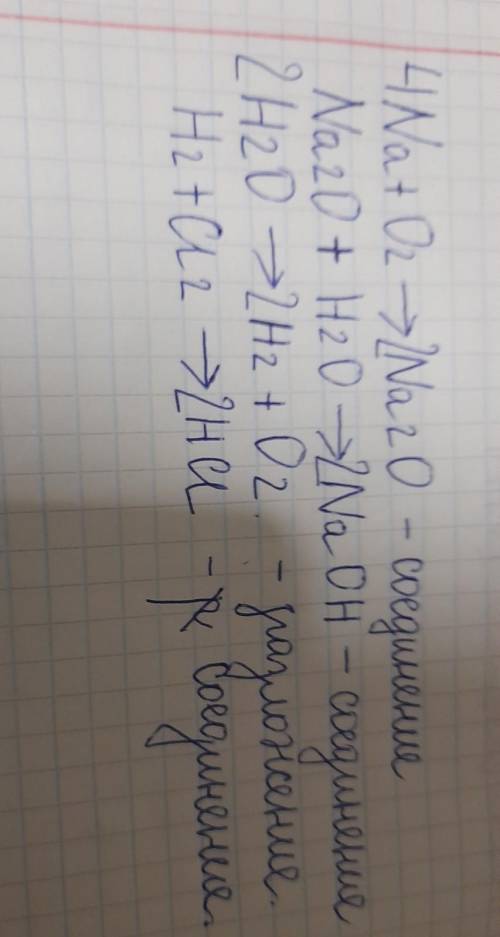 4Na + O2 → 2Na2O - соединение
Na2O + H2O → 2NaOH - соединения
2H2O → 2H2 + O2 - разложение.
H2 + Cl2 → 2HCl - соединения.